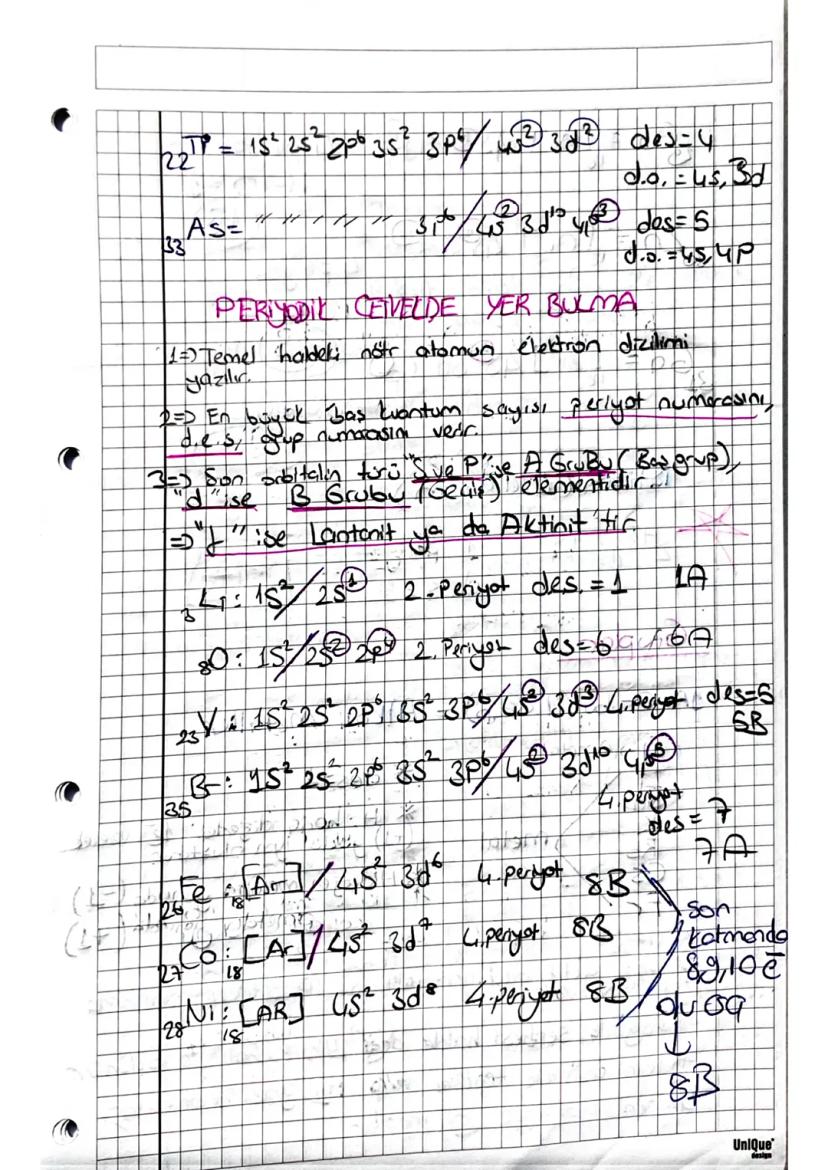 22Ti = 1S² 2S² 2p⁶ 3S² 3p⁶ / 4s² 3d² des=4
d.o. = 4s, 3d
33As= " " " " " 3p⁶ / 4s² 3d¹⁰ 4p³ des=5
d.o. =4s,4p
PERİYODİK CETVELDE YER BULMA
1=> Temel haldeki nötr atomun elektron dizilimi
yazılır.
2=> En büyük baş kuantum sayısı periyot numarasını,
d.e.s, grup numarasını verir.
3=> Son orbitalin türü "S ve P" ise A Grubu (Baş grup),
"d" ise B Grubu (Geçiş) elementidir.
=> "f" ise Lantanit ya da Aktinit'tir.
3Li: 1S² / 2S¹ 2. Periyot des. = 1 1A
8O: 1S² / 2S² 2p⁴ 2. Periyot des=6 6A
23V: 1S² 2S² 2P⁶ 3S² 3P⁶ / 4S² 3d³ 4. periyot des=5
5B
35Br: 1S² 2S² 2p⁶ 3S² 3P⁶ / 4S² 3d¹⁰ 4p⁵
4. periyot
des = 7
7A
26Fe : 18[Ar] / 4S² 3d⁶ 4. periyot 8B
27Co: 18[Ar] / 4S² 3d⁷ 4. periyot 8B
28Ni: 18[AR] 4S² 3d⁸ 4. periyot 8B
son
katmanda
8,9,10 e⁻
↓
8B
UnıQue
design